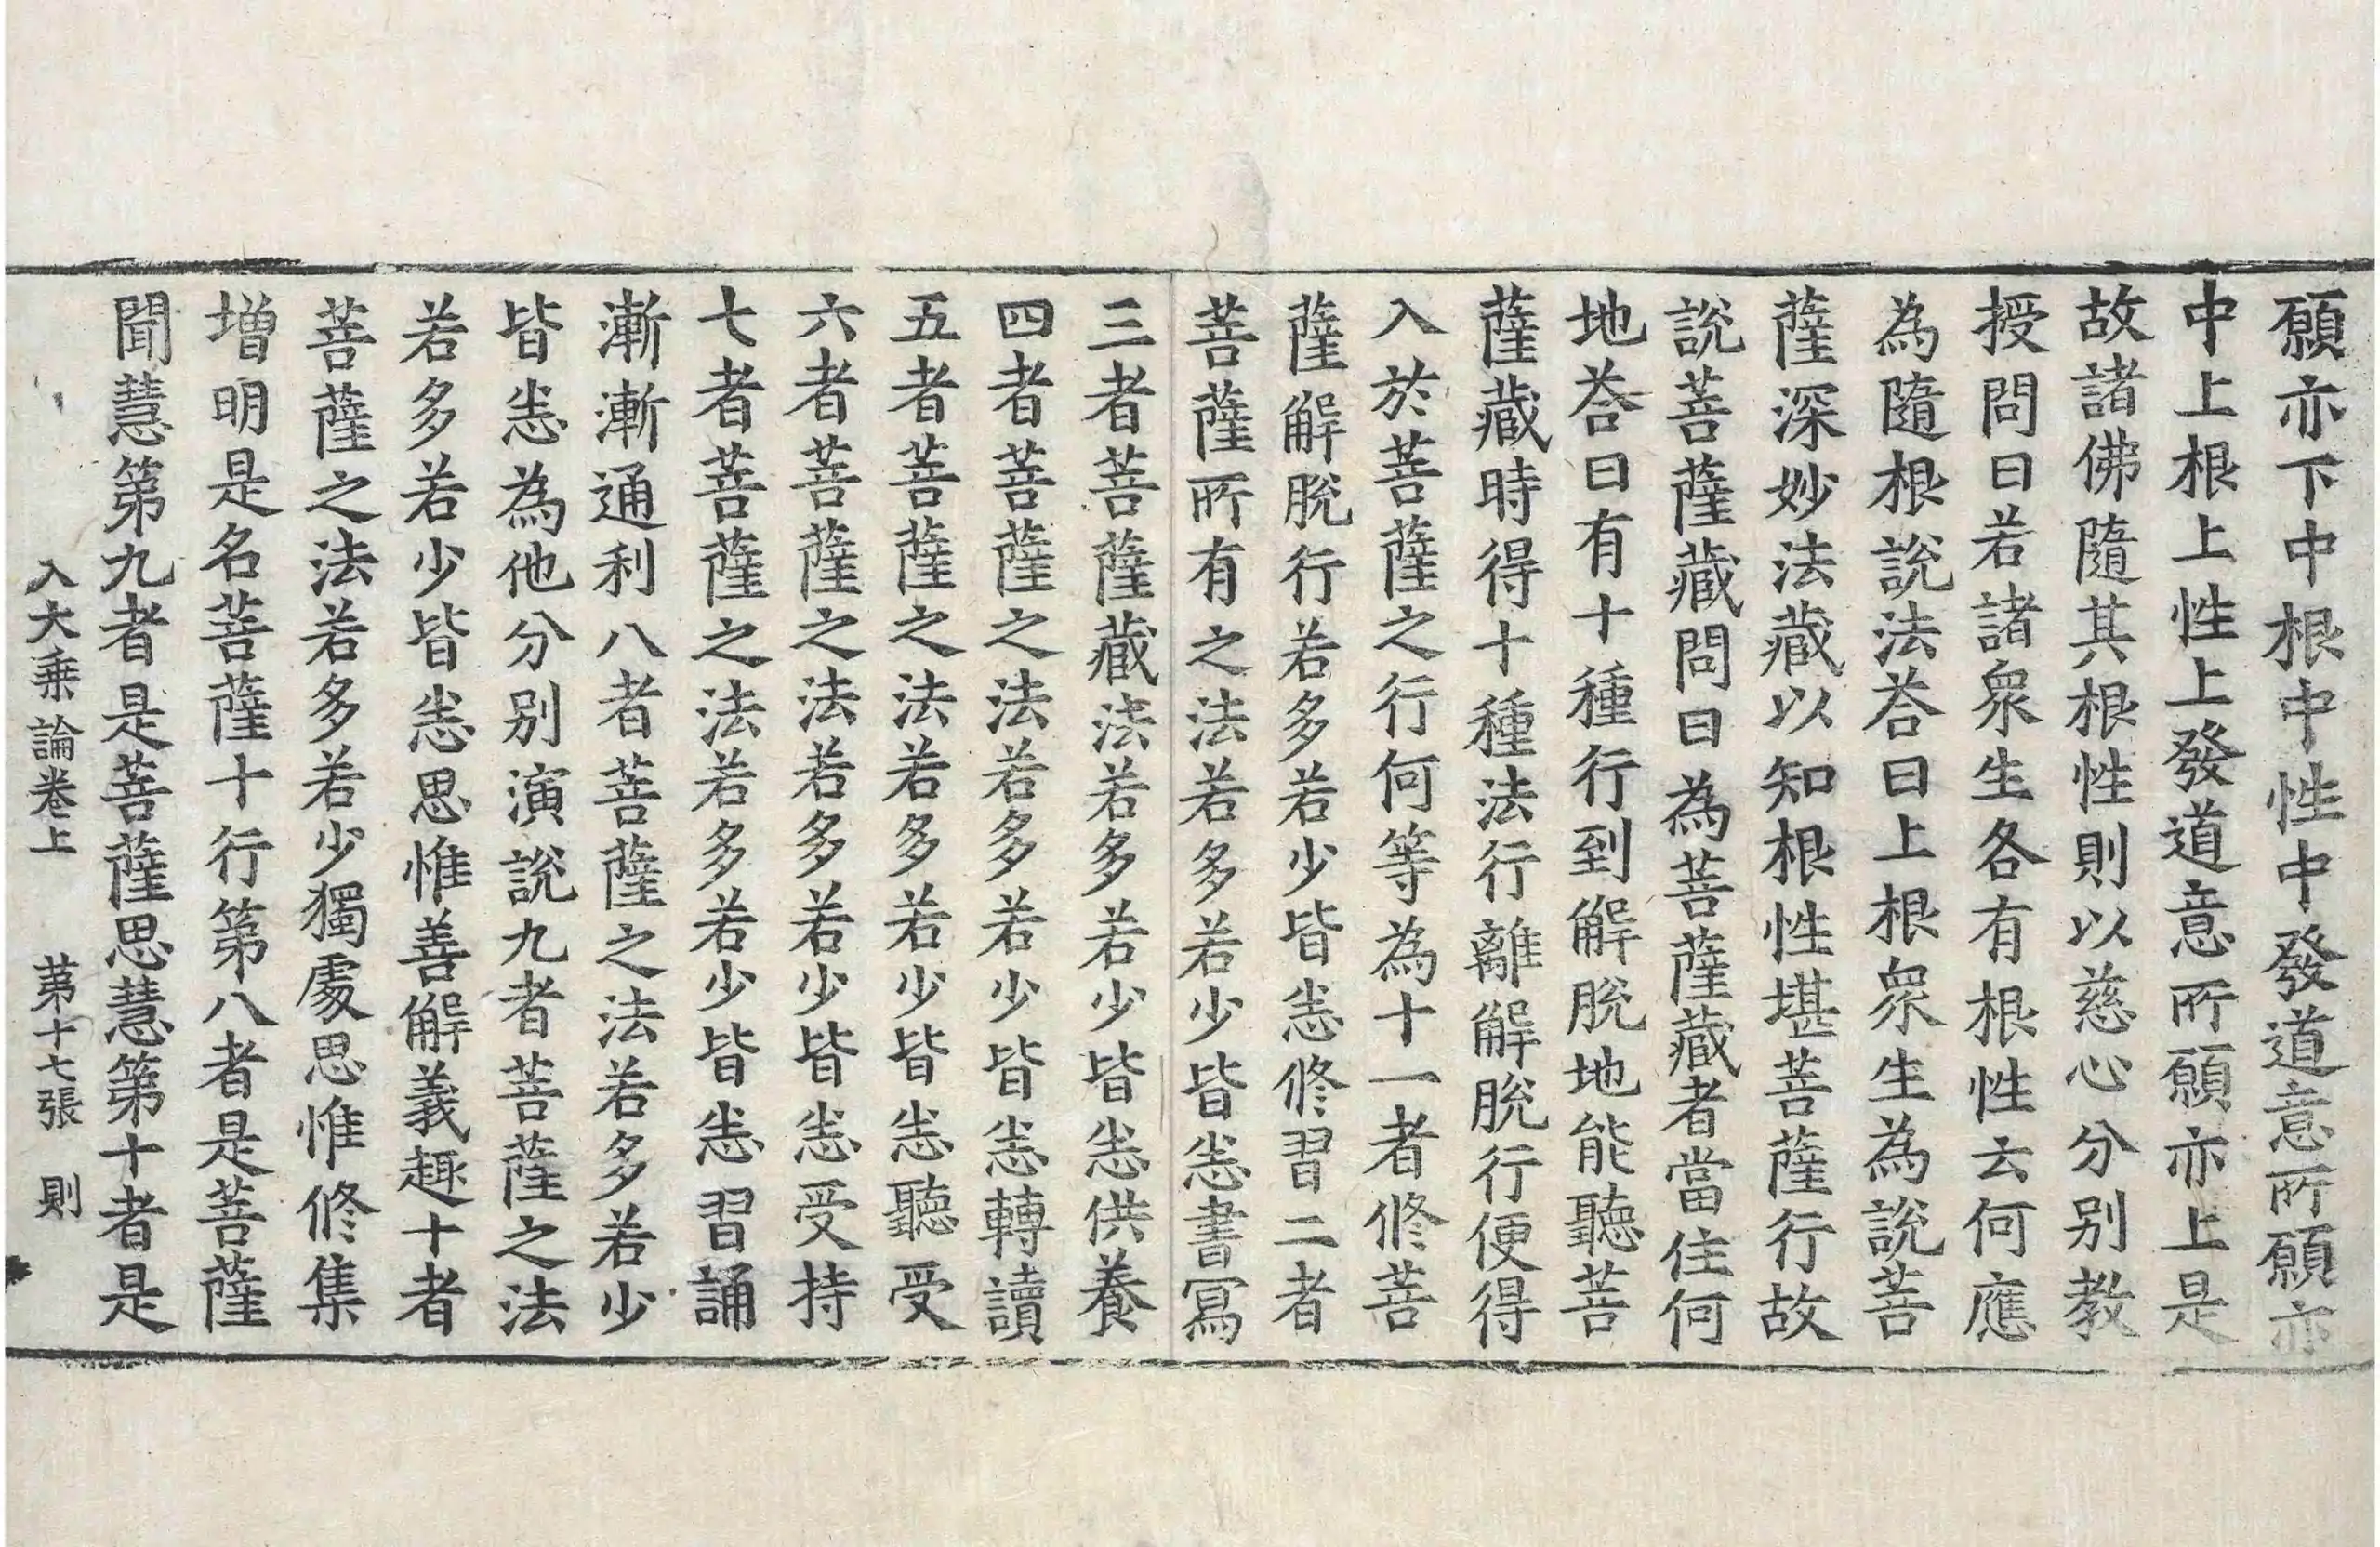 願亦下中根中性中發道意所願亦
中上根上性上發道意所願亦上是
故諸佛隨其根性則以慈心分别教
授問曰若諸衆生各有根性云何應
為隨根說法荅曰上根衆生為說菩
薩深妙法藏以知根性堪菩薩行故
說菩薩藏問曰為菩薩藏者當住何
地荅曰有十種行到解脫地能聽菩
薩藏時得十種法行離解脫行便得
入於菩薩之行何等為十一者修菩
薩解脫行若多若少皆悉修習二者
菩薩所有之法若多若少皆悉書寫
三者菩薩藏法若多若少皆悉供養
四者菩薩之法若多若少皆悉轉讀
五者菩薩之法若多若少皆悉聽受
六者菩薩之法若多若少皆悉受持
七者菩薩之法若多若少皆悉習誦
漸漸通利八者菩薩之法若多若少
皆悉為他分别演說九者菩薩之法
若多若少皆悉思惟善解義趣十者
菩薩之法若多若少獨處思惟修集
增明是名菩薩十行第八者是菩薩
聞慧第九者是菩薩思慧第十者是
入大乗論卷上 第十七張 則